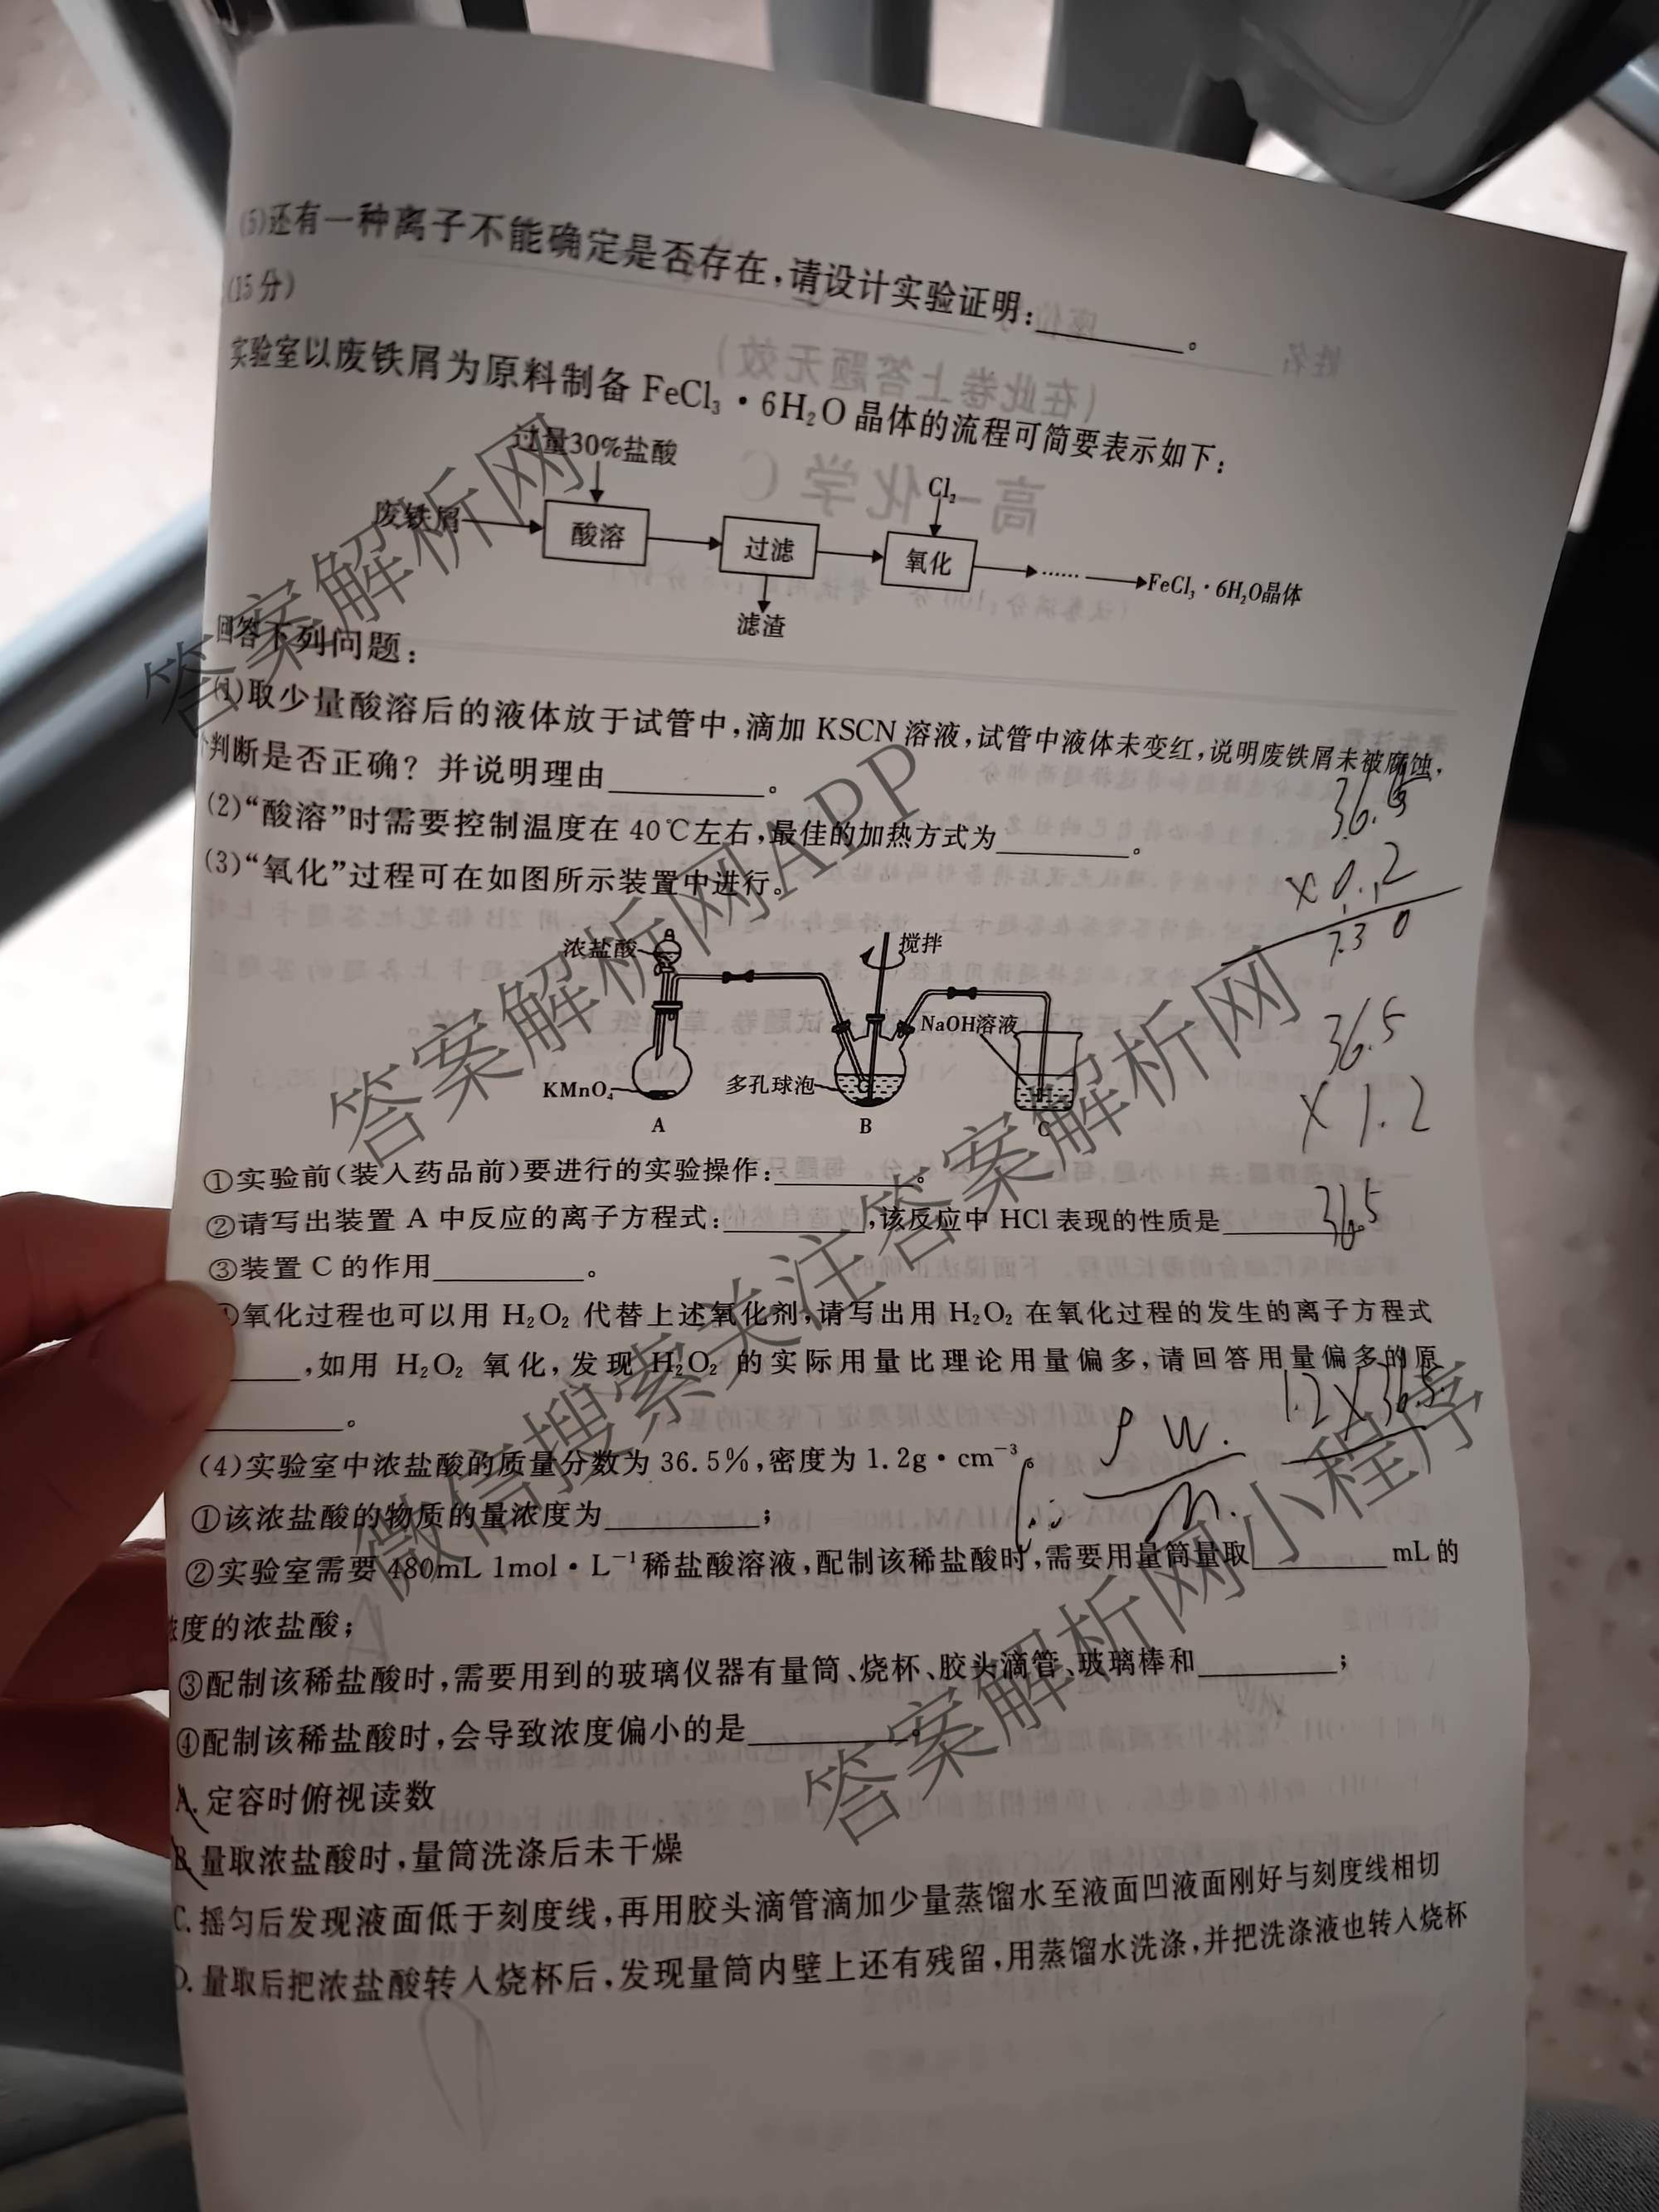 (5)还有一种离子不能确定是否存在,请设计实验证明:________。
(15分)
实验室以废铁屑为原料制备 FeCl₃·6H₂O 晶体的流程可简要表示如下:
过量30%盐酸
Cl₂
废铁屑
酸溶
过滤
氧化
……
FeCl₃·6H₂O晶体
滤渣
回答下列问题:
(1)取少量酸溶后的液体放于试管中,滴加 KSCN 溶液,试管中液体未变红,说明废铁屑未被腐蚀,
判断是否正确? 并说明理由________。
(2)“酸溶”时需要控制温度在 40℃左右,最佳的加热方式为________。
(3)“氧化”过程可在如图所示装置中进行。
36.5
×0.2
7.3 0
浓盐酸
搅拌
NaOH溶液
KMnO₄
多孔球泡
A
B
C
36.5
×1.2
①实验前(装入药品前)要进行的实验操作:________。
②请写出装置 A 中反应的离子方程式:________,该反应中 HCl 表现的性质是________
36.5
③装置 C 的作用________。
氧化过程也可以用 H₂O₂ 代替上述氧化剂,请写出用 H₂O₂ 在氧化过程的发生的离子方程式
____,如用 H₂O₂ 氧化,发现 H₂O₂ 的实际用量比理论用量偏多,请回答用量偏多的原
________。
1.2×36.5
(4)实验室中浓盐酸的质量分数为 36.5%,密度为 1.2g·cm⁻³。
ρ w.
①该浓盐酸的物质的量浓度为________;
②实验室需要 480mL 1mol·L⁻¹稀盐酸溶液,配制该稀盐酸时,需要用量筒量取________mL 的
浓度的浓盐酸;
③配制该稀盐酸时,需要用到的玻璃仪器有量筒、烧杯、胶头滴管、玻璃棒和________;
④配制该稀盐酸时,会导致浓度偏小的是________。
A.定容时俯视读数
B.量取浓盐酸时,量筒洗涤后未干燥
C.摇匀后发现液面低于刻度线,再用胶头滴管滴加少量蒸馏水至液面凹液面刚好与刻度线相切
D.量取后把浓盐酸转入烧杯后,发现量筒内壁上还有残留,用蒸馏水洗涤,并把洗涤液也转入烧杯
答案解析网
答案解析网APP
微信搜索关注答案解析网
答案解析网小程序